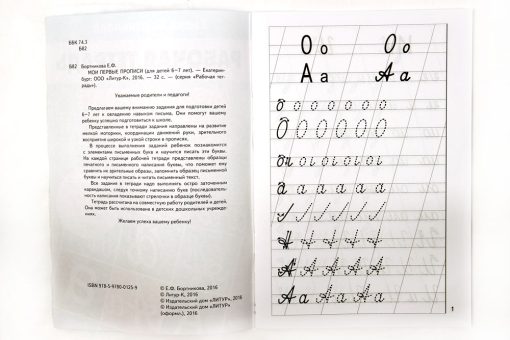 ББК 74.3
Б82
Б82 Бортникова Е.Ф.
МОИ ПЕРВЫЕ ПРОПИСИ (для детей 6–7 лет). — Екатерин-
бург: ООО «Литур-К», 2016. — 32 с. — (серия «Рабочая тет-
радь»).
Уважаемые родители и педагоги!
Предлагаем вашему вниманию задания для подготовки детей
6–7 лет к овладению навыком письма. Они помогут вашему
ребенку успешно подготовиться к школе.
Представленные в тетради задания направлены на развитие
мелкой моторики, координации движений руки, зрительного
восприятия широкой и узкой строки в прописях.
В процессе выполнения заданий ребенок познакомится
с элементами письменных букв и научится писать эти буквы.
На каждой странице рабочей тетради представлены образцы
печатного и письменного написания буквы, что поможет ему
сравнить их зрительные образы, запомнить образы письменной
буквы и научиться писать и читать письменный текст.
Все задания в тетради надо выполнять остро заточенным
карандашом, следуя точному написанию букв (последователь-
ность написания показывают стрелочки в образце буквы).
Тетрадь рассчитана на совместную работу родителей и детей.
Она может быть использована в детских дошкольных учрежде-
ниях.
Желаем успеха вашему ребенку!
ISBN 978-5-9780-0125-9
© Е.Ф. Бортникова, 2016
© Литур-К, 2016
© Издательский дом «ЛИТУР», 2016
© Издательский дом «ЛИТУР»
(оформл.), 2016
О о О о
А а А а
о О О О О О О О
О О О О О О О
а а а а а
А А А А А
А А А А А
Аа Аа Аа Аа
1